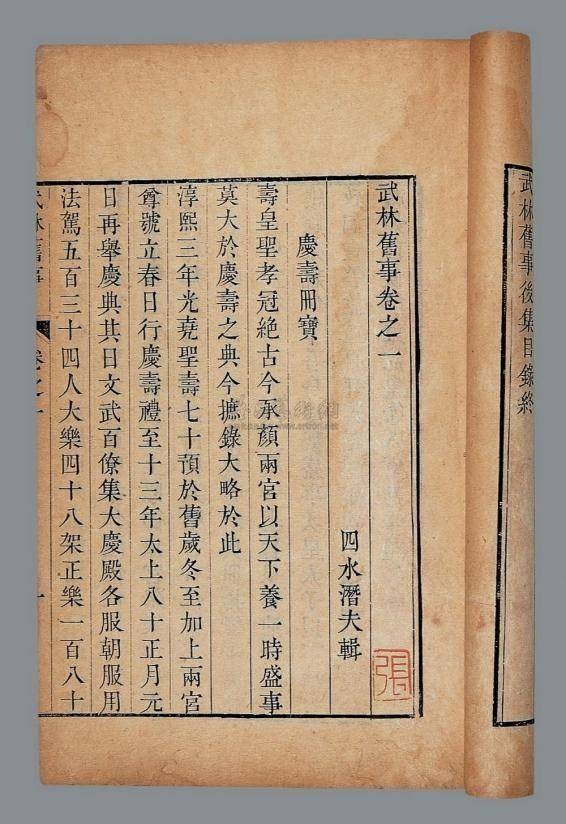 武林舊事後集目錄終
武林舊事卷之一
四水潛夫輯
張
慶壽冊寶
壽皇聖孝冠絕古今承顏兩宮以天下養一時盛事
莫大於慶壽之典今摭錄大略於此
淳熙三年光堯聖壽七十預於舊歲冬至加上兩宮
尊號立春日行慶壽禮至十三年太上八十正月元
日再舉慶典其日文武百僚集大慶殿各服朝服用
法駕五百三十四人大樂四十八架正樂一百八十
武林舊事
卷之一
一